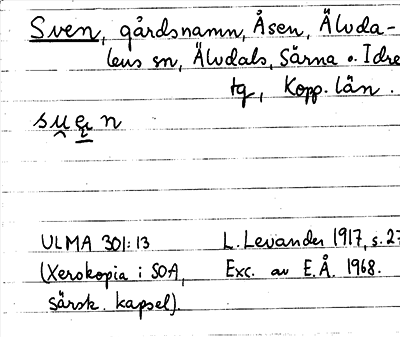 Sven, gårdsnamn, Åsen, Älvda-
lens sn, Älvdals, Särna o. Idre
tg, Kopp. län.
su̯ęn
ULMA 301:13 L. Levander 1917, s. 27
(Xerokopia i SOA, Exc. av E.Å. 1968.
särsk. kapsel).